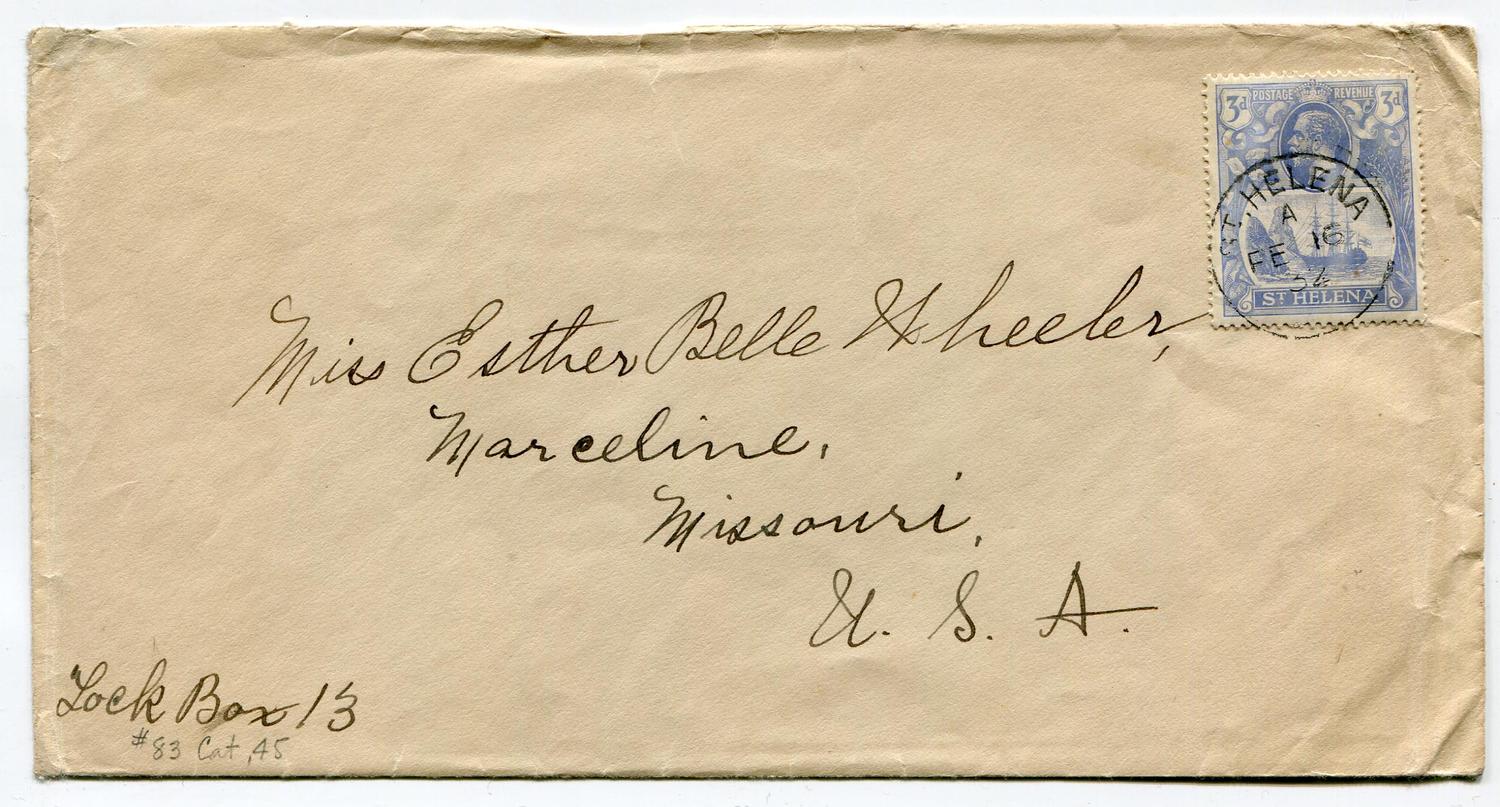 3d POSTAGE REVENUE 3d
ST. HELENA
A
FE 16
34
ST HELENA
Miss Esther Belle Wheeler,
Marceline,
Missouri,
U. S. A.
Lock Box 13
#83 Cat .45